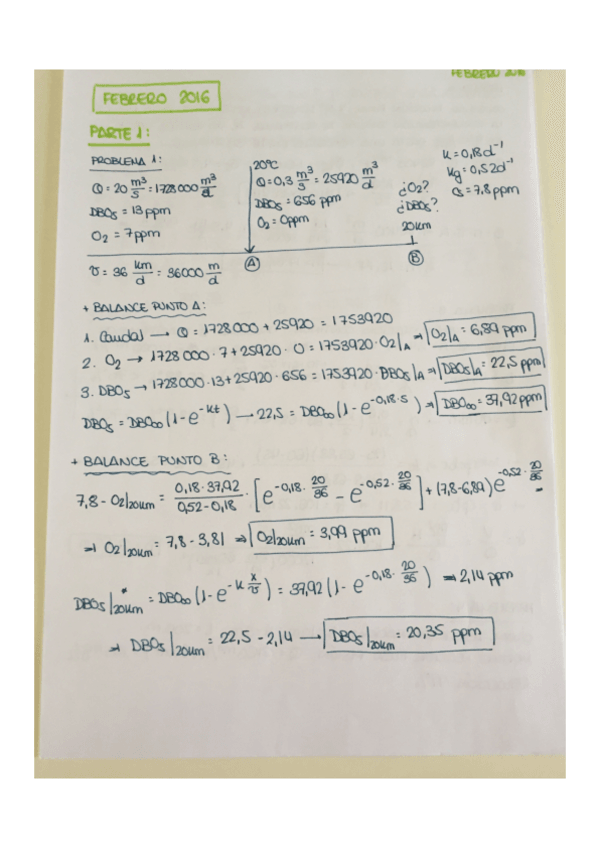 FEBRERO 2016
FEBRERO 2016
PARTE 1:
PROBLEMA 1:
Q = 20 m³/s = 1728000 m³/d
DBO₅ = 13 ppm
O₂ = 7 ppm
20ºC
Q = 0,3 m³/s = 25920 m³/d
DBO₅ = 656 ppm
O₂ = 0ppm
K = 0,18 d⁻¹
Kg = 0,52 d⁻¹
Cs = 7,8 ppm
¿O₂?
¿DBO₅?
20km
A
B
v = 36 km/d = 36000 m/d
+ BALANCE PUNTO A:
1. Caudal → Q = 1728000 + 25920 = 1753920
2. O₂ → 1728000·7 + 25920·0 = 1753920·O₂|A ⇒ O₂|A = 6,89 ppm
3. DBO₅ → 1728000·13 + 25920·656 = 1753920·DBO₅|A ⇒ DBO₅|A = 22,5 ppm
DBO₅ = DBO∞(1 - e^-Kt) → 22,5 = DBO∞(1 - e^-0,18·5) ⇒ DBO∞ = 37,92 ppm
+ BALANCE PUNTO B:
7,8 - O₂|20km = 0,18·37,92/0,52-0,18 · [e^-0,18·20/36 - e^-0,52·20/36] + (7,8-6,89)e^-0,52·20/36
⇒ O₂|20km = 7,8 - 3,81 ⇒ O₂|20km = 3,99 ppm
DBO₅|20km* = DBO∞(1 - e^-K x/v) = 37,92(1 - e^-0,18·20/36) ⇒ 2,14 ppm
⇒ DBO₅|20km = 22,5 - 2,14 → DBO₅|20km = 20,35 ppm